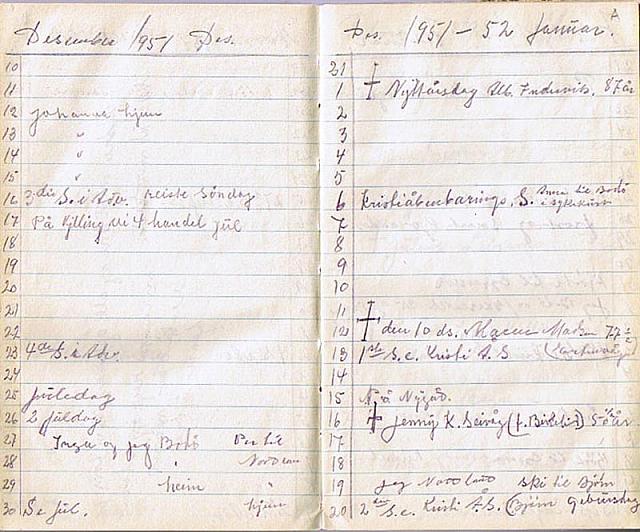 Desember 1951 Des.
10
11
12 Johanna hjem
13 "
14 "
15 "
16 3die S. i Adv. reiste Søndag
17 På Kjilling vi 4 handel jul
18
19
20
21
22
23 4de S. i Adv.
24
25 Juledag
26 2 juldag
27 Inga og jeg Bodø Per til
28 " Nordland
29 heim "
30 S e jul. hjem
Des. 1951 - 52 Januar.
21
1 † Nyttårsdag Alb. Indervik. 87 år
2
3
4
5
6 Kristiåbenbarings. S. Anna til Bodø
i sykehus
7
8
9
10
11
12 † den 10 ds. 77
13 1ste S. e. Kristi Å. S
14
15
16 † Jenny K. Seivåg (f.
17
18
19 jeg Nordland ski til Bjørn
20 2den S. e. Kristi Å. S. (Bjørn geburtsdag